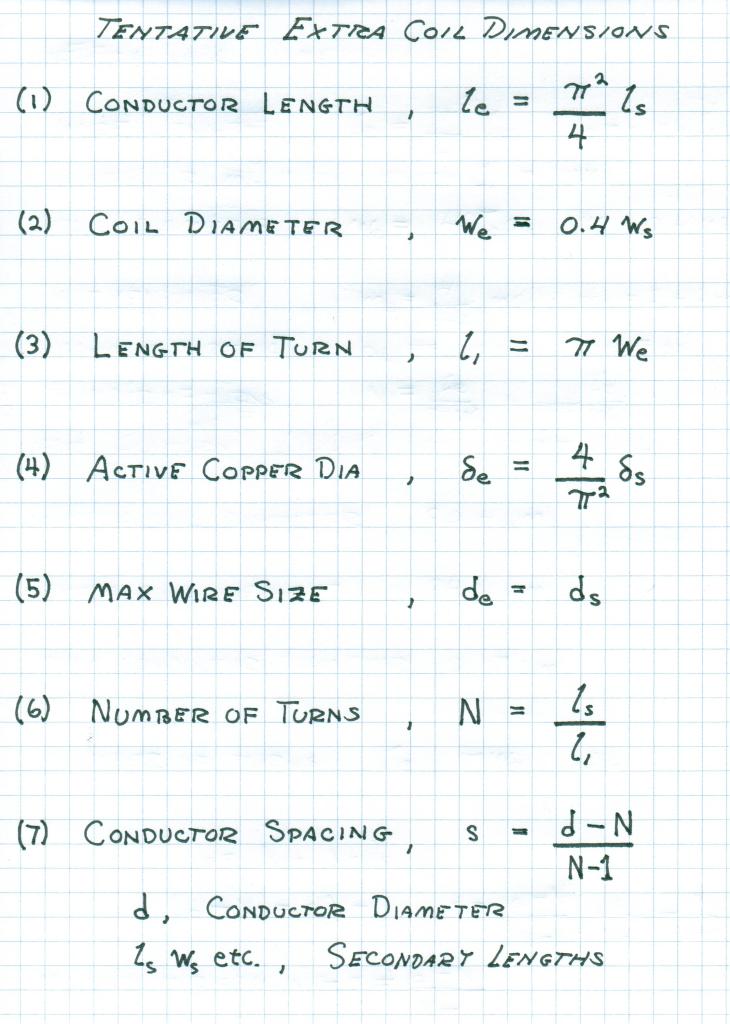 TENTATIVE EXTRA COIL DIMENSIONS
(1) CONDUCTOR LENGTH, lₑ = π²/4 lₛ
(2) COIL DIAMETER, Wₑ = 0.4 Wₛ
(3) LENGTH OF TURN, l₁ = π Wₑ
(4) ACTIVE COPPER DIA, δₑ = 4/π² δₛ
(5) MAX WIRE SIZE, dₑ = dₛ
(6) NUMBER OF TURNS, N = lₛ/l₁
(7) CONDUCTOR SPACING, s = d-N/N-1
d, CONDUCTOR DIAMETER
lₛ Wₛ etc., SECONDARY LENGTHS